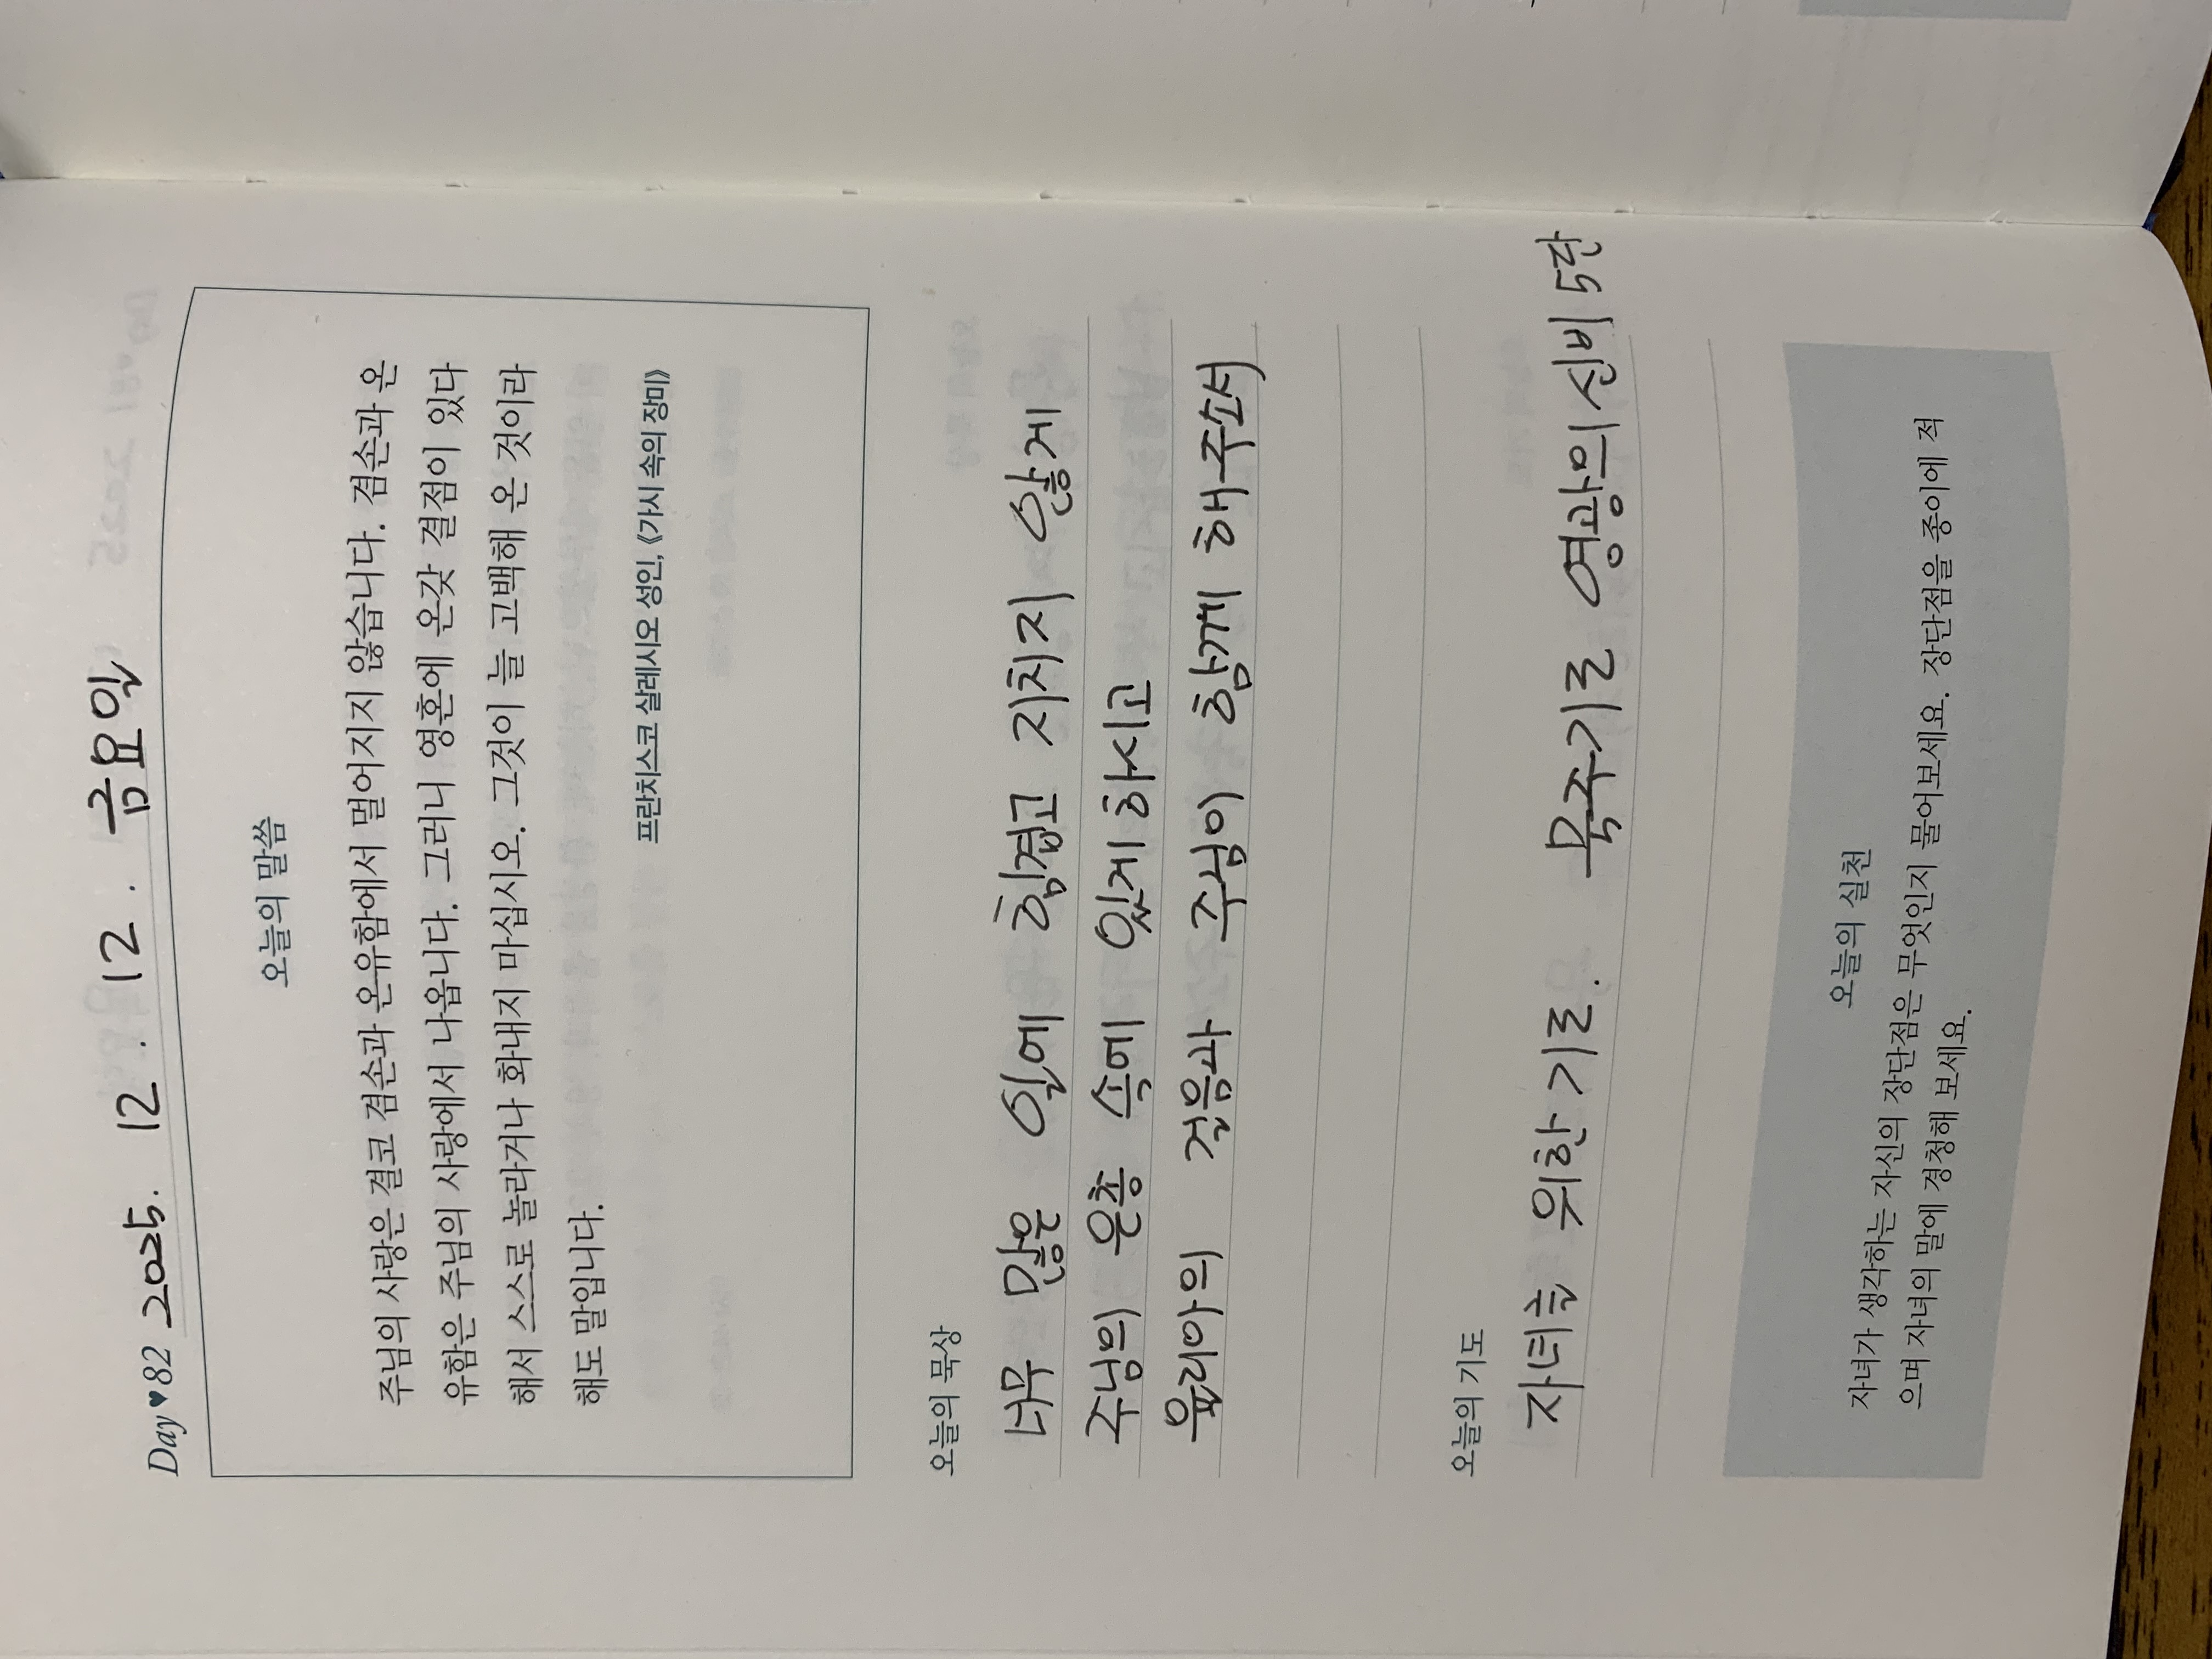 Day ♥ 82 2025. 12. 12. 금요일
오늘의 말씀
주님의 사랑은 결코 겸손과 온유함에서 멀어지지 않습니다. 겸손과 온
유함은 주님의 사랑에서 나옵니다. 그러니 영혼에 온갖 결점이 있다
해서 스스로 놀라거나 화내지 마십시오. 그것이 늘 고백해 온 것이라
해도 말입니다.
프란치스코 살레시오 성인, 《가시 속의 장미》
오늘의 묵상
너무 많은 일에 힘겹고 지치지 않게
주님의 은총 속에 있게 하시고
율리아의 걸음과 주님이 함께 해 주소서
오늘의 기도
자녀를 위한 기도. 묵주기도 영광의 신비 5단
오늘의 실천
자녀가 생각하는 자신의 장단점은 무엇인지 물어보세요. 장단점을 종이에 적
으며 자녀의 말에 경청해 보세요.